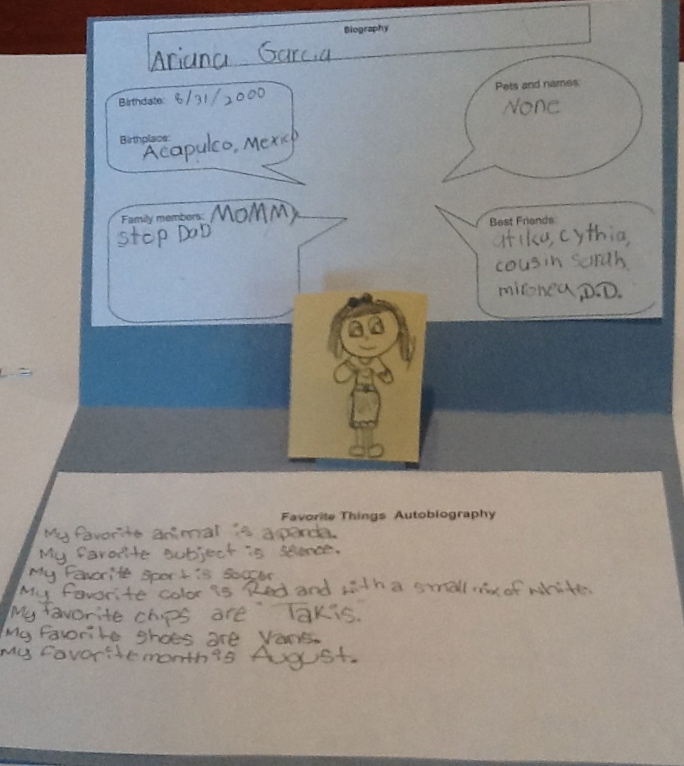 Biography
Ariana Garcia
Birthdate: 8/31/2000
Birthplace:
Acapulco, Mexico
Pets and names:
None
Family members: MOMMy
step DaD
Best Friends:
atika, cythia,
cousin Sarah
D.D.
Favorite Things Autobiography
My favorite animal is a panda.
My favorite subject is sience.
My favorite sport is soccer
My favorite color is Red and with a small mix of white.
My favorite chips are "Takis."
My favorite shoes are Vans.
My favorite month is August.